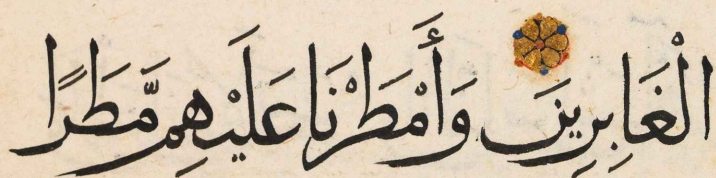 الْغَابِرِينَ وَأَمْطَرْنَا عَلَيْهِم مَّطَرًا